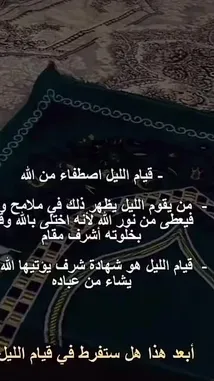 - قيام الليل اصطفاء من الله
- من يقوم الليل يظهر ذلك في ملامح و
فيعطى من نور الله لأنه اختلى بالله وف
بخلوته أشرف مقام
- قيام الليل هو شهادة شرف يوتيها الله
يشاء من عباده
أبعد هذا هل ستفرط في قيام الليل